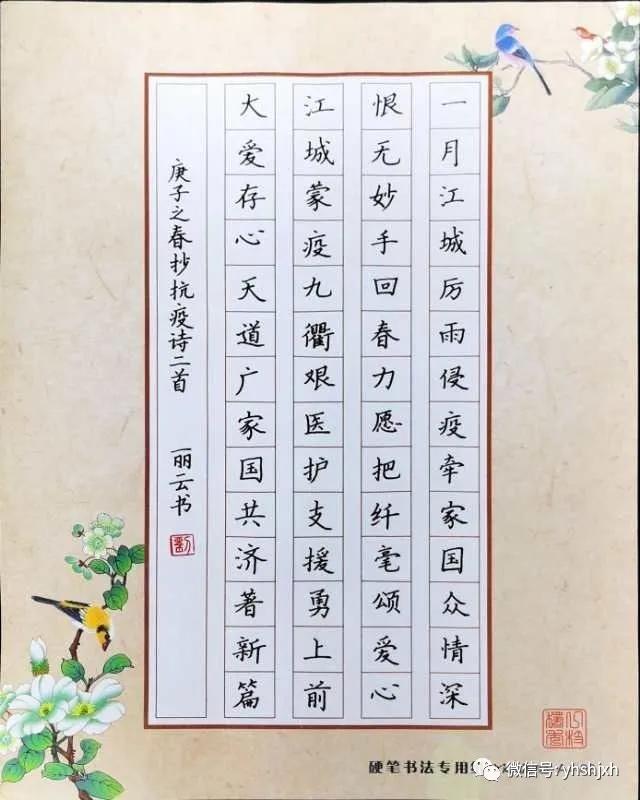 一月江城厉雨侵疫牵家国众情深
恨无妙手回春力愿把纤毫颂爱心
江城蒙疫九衢艰医护支援勇上前
大爱存心天道广家国共济著新篇
庚子之春抄抗疫诗二首 丽云书
硬笔书法专用
微信号: yhshjxh